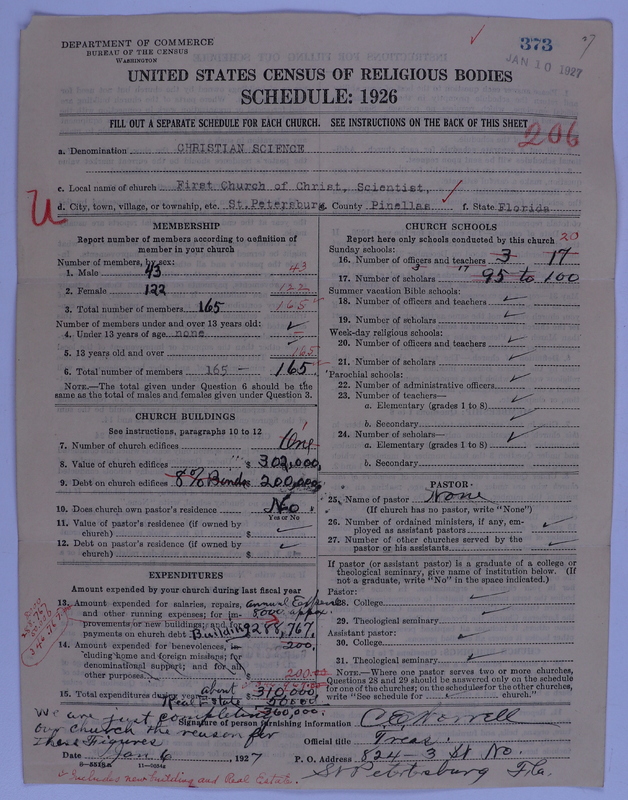 DEPARTMENT OF COMMERCE
BUREAU OF THE CENSUS
WASHINGTON
373
JAN 10 1927
UNITED STATES CENSUS OF RELIGIOUS BODIES
SCHEDULE: 1926
FILL OUT A SEPARATE SCHEDULE FOR EACH CHURCH. SEE INSTRUCTIONS ON THE BACK OF THIS SHEET
206
a. Denomination CHRISTIAN SCIENCE
c. Local name of church First Church of Christ, Scientist,
d. City, town, village, or township, etc. St.Petersburg County Pinellas f. State Florida
MEMBERSHIP
Report number of members according to definition of
member in your church
Number of members, by sex:
1. Male 43 43
2. Female 122 122
3. Total number of members 165 165
Number of members under and over 13 years old:
4. Under 13 years of age none
5. 13 years old and over 165
6. Total number of members 165 165
NOTE.—The total given under Question 6 should be the
same as the total of males and females given under Question 3.
CHURCH BUILDINGS
See instructions, paragraphs 10 to 12
7. Number of church edifices One
8. Value of church edifices $ 302,000,
9. Debt on church edifices 8% Bonds $ 200,000,
10. Does church own pastor's residence No
Yes or No
11. Value of pastor's residence (if owned by
church) $
12. Debt on pastor's residence (if owned by
church) $
EXPENDITURES
Amount expended by your church during last fiscal year
13. Amount expended for salaries, repairs, annual Expense
and other running expenses; for im- 8000 appx.
provements or new buildings; and for
payments on church debt Building $ 288,767.
14. Amount expended for benevolences, in- 200,
cluding home and foreign missions; for
denominational support; and for all
other purposes $ 200.00
15. Total expenditures during year about $ 310,000,
Real Estate 50000
360,000.
We are just completing
our church the reason for
these Figures
CHURCH SCHOOLS
Report here only schools conducted by this church 20
Sunday schools:
16. Number of officers and teachers 3 17
3 17
17. Number of scholars 95 to 100
Summer vacation Bible schools:
18. Number of officers and teachers
19. Number of scholars
Week-day religious schools:
20. Number of officers and teachers
21. Number of scholars
Parochial schools:
22. Number of administrative officers
23. Number of teachers—
a. Elementary (grades 1 to 8)
b. Secondary
24. Number of scholars—
a. Elementary (grades 1 to 8)
b. Secondary
PASTOR
25. Name of pastor None
(If church has no pastor, write "None")
26. Number of ordained ministers, if any, em-
ployed as assistant pastors
27. Number of other churches served by the
pastor or his assistants
If pastor (or assistant pastor) is a graduate of a college or
theological seminary, give name of institution below. (If
not a graduate, write "No" in the space indicated.)
Pastor:
28. College
29. Theological seminary
Assistant pastor:
30. College
31. Theological seminary
NOTE.—Where one pastor serves two or more churches,
Questions 28 and 29 should be answered only on the schedule
for one of the churches; on the schedules for the other churches,
write "See schedule for church."
Signature of person furnishing information
Official title Treas.
Date Jan 6 1927 P. O. Address 824 3 St No.
St Petersburg Fla.
8-5518A 11-0034
Includes new building and Real Estate.